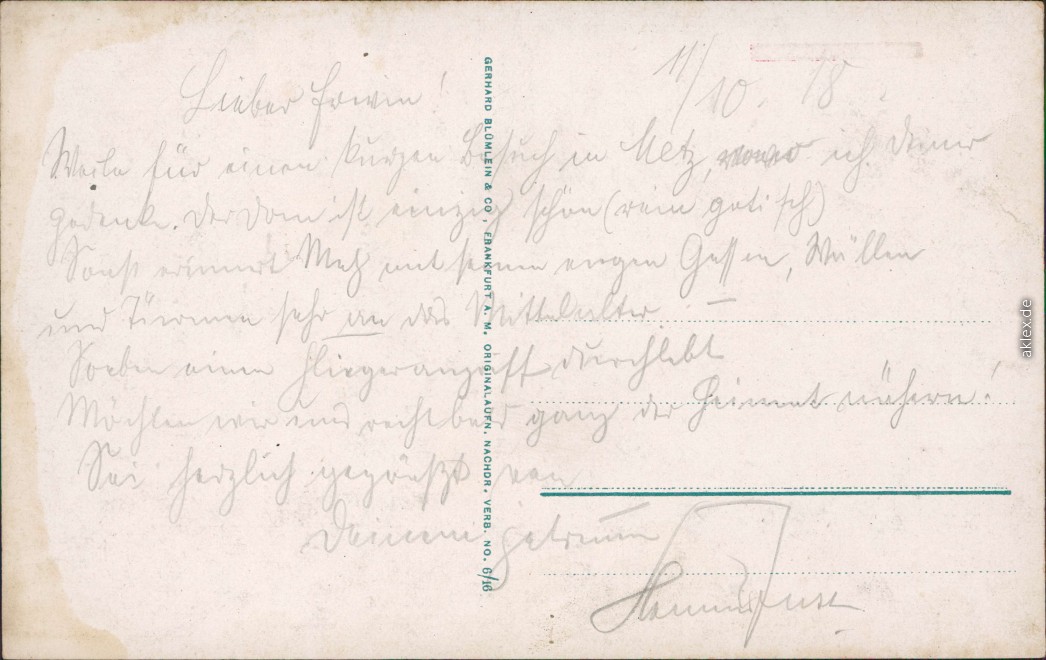 11/10. 18.
Lieber Erwin!
Weile für einen kurzen Besuch in Metz, wo ich Deiner
gedenke. Der Dom ist einzig schön (rein gotisch)
Sonst erinnert Metz mit seinen engen Gassen, Wällen
und Türmen sehr an das Mittelalter. —
Soeben einen Fliegerangriff durchlebt
Möchten wir uns recht bald ganz der Heimat nähern!
Sei herzlich gegrüßt von
Deinem getreuen
GERHARD BLÜMLEIN & CO., FRANKFURT A. M. ORIGINALAUFN. NACHDR. VERB. NO. 6/16
aklex.de